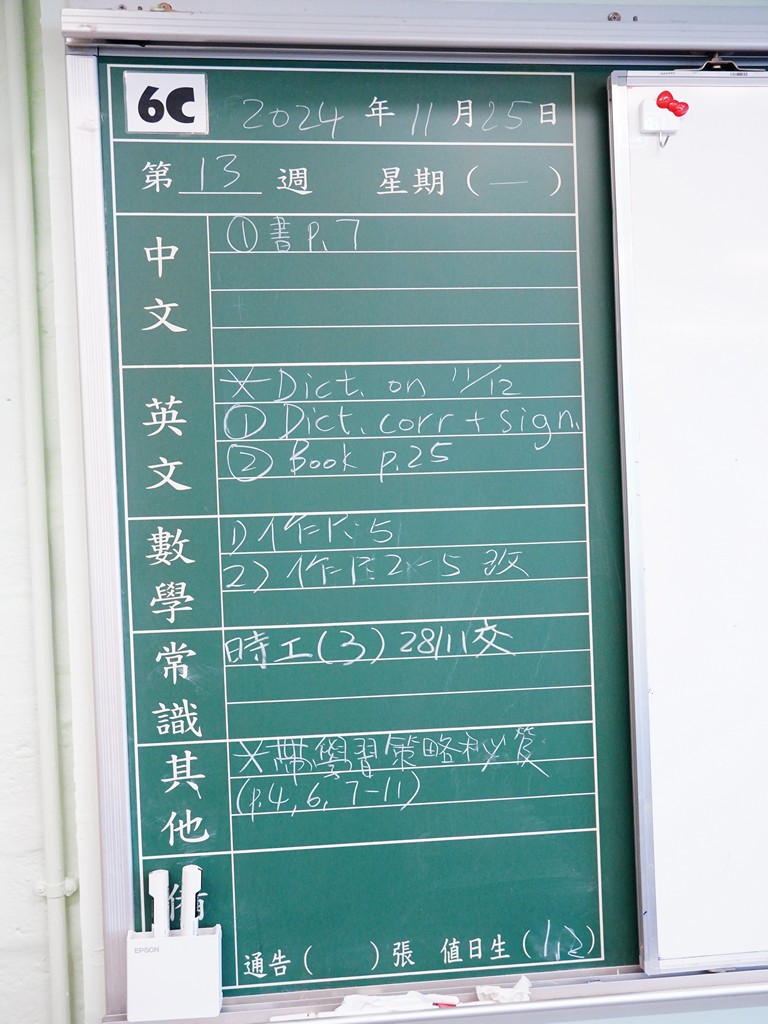 6C 2024 年 11 月 25 日
第 13 週 星期 ( 一 )
中文
① 書 P. 7
英文
* Dict. on 11/12
① Dict. corr + sign.
② Book p.25
數學
1) 作 P. 5
2) 作 P. 2-5 改
常識
時工(3) 28/11 交
其他
*帶學習策略
(p.4, 6, 7-11)
備
EPSON
通告 ( ) 張 值日生 ( 1,2 )